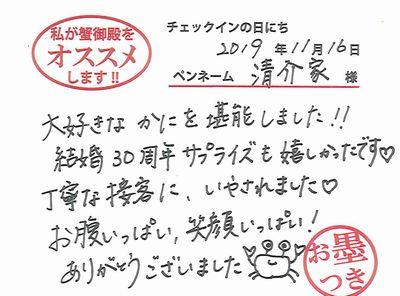 私が蟹御殿を
オススメ
します!!
チェックインの日にち
2019 年 11月 16日
ペンネーム 清介家 様
大好きな かにを 堪能しました!!
結婚30周年 サプライズも 嬉しかったです♡
丁寧な接客に、いやされました♡
お腹いっぱい、笑顔いっぱい!
ありがとうございました
お墨
つき